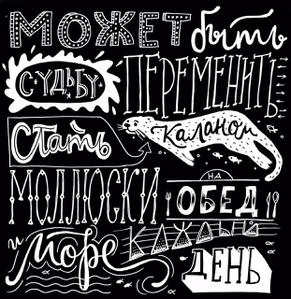 МОЖЕТ быть
СУДЬБУ ПЕРЕМЕНИТЬ
Стать Каланом
МОЛЛЮСКИ НА ОБЕД
и Море КАЖДЫЙ ДЕНЬ